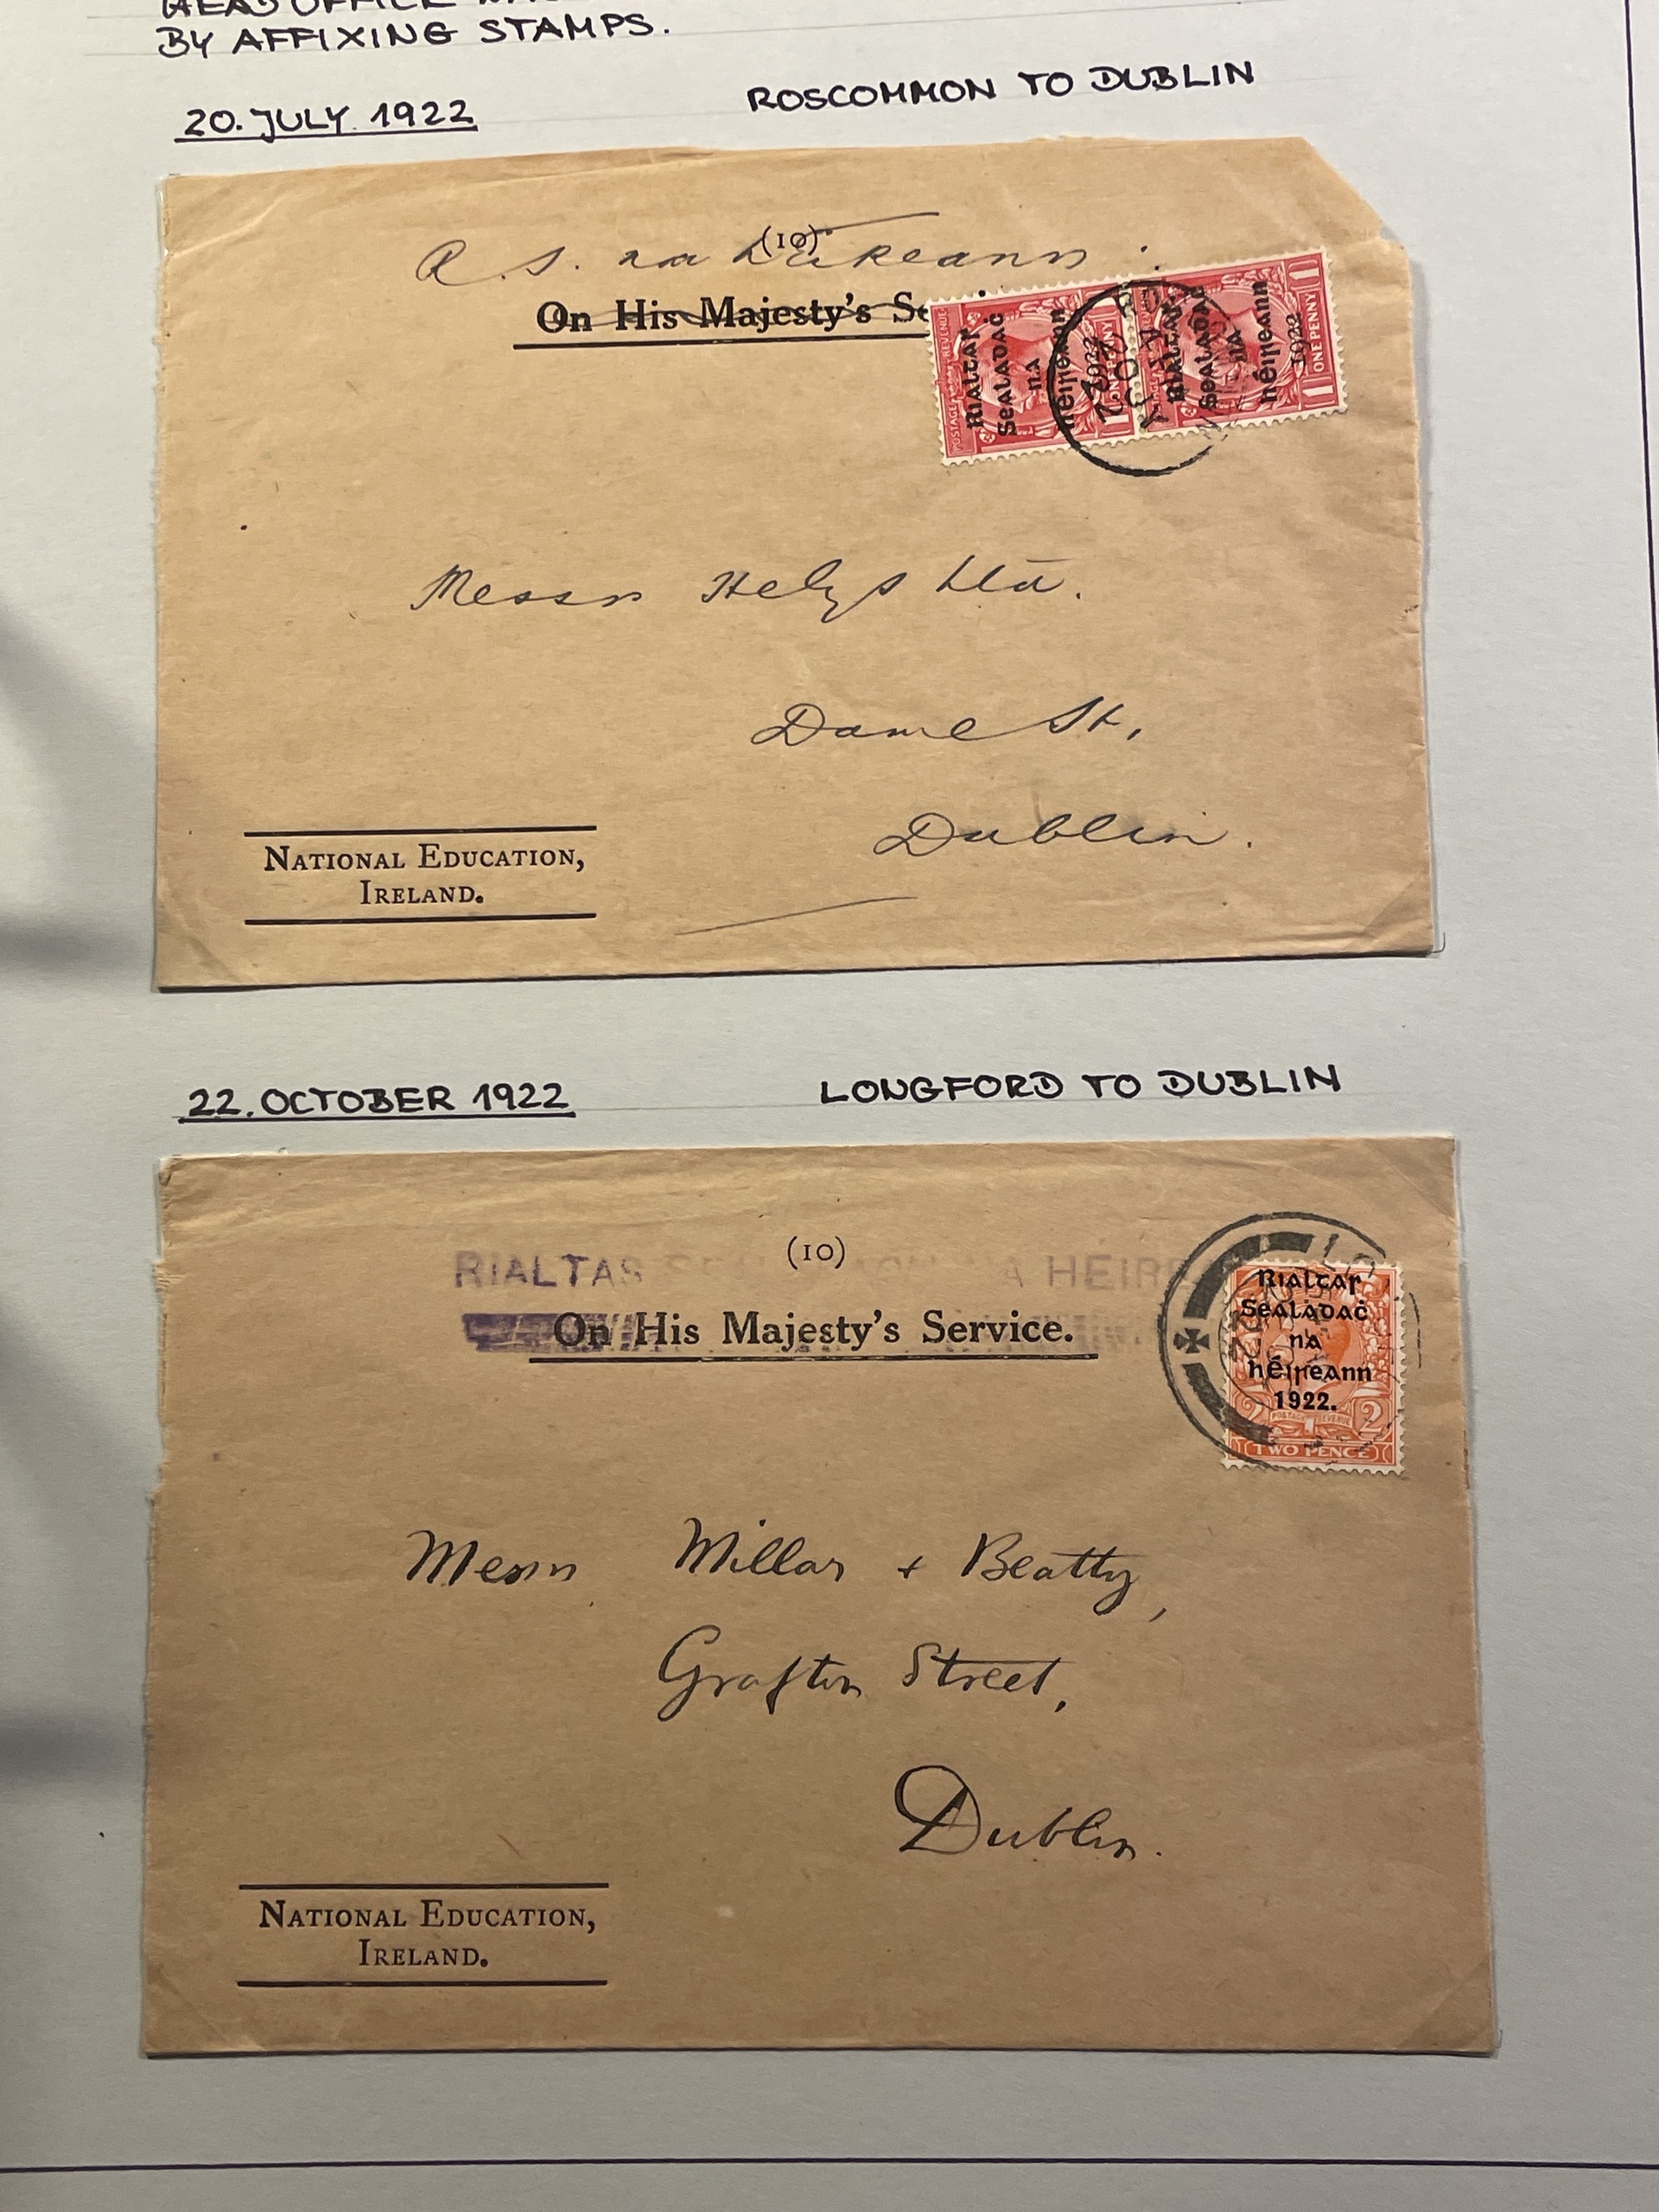 BY AFFIXING STAMPS.
20. JULY 1922
ROSCOMMON TO DUBLIN
(10)
R. S. na hÉireann
On His Majesty's Se
Rialtas
Sealadaċ
na
hÉireann
1922
ONE PENNY
Rialtas
Sealadaċ
na
hÉireann
1922
ONE PENNY
Messrs Helys Ltd.
Dame St,
Dublin.
NATIONAL EDUCATION,
IRELAND.
22. OCTOBER 1922
LONGFORD TO DUBLIN
(10)
RIALTAS NA HEIRE
On His Majesty's Service.
Rialtas
Sealadaċ
na
hÉireann
1922.
POSTAGE REVENUE
2 2
TWO PENCE
Messrs Millar + Beatty,
Grafton Street,
Dublin.
NATIONAL EDUCATION,
IRELAND.